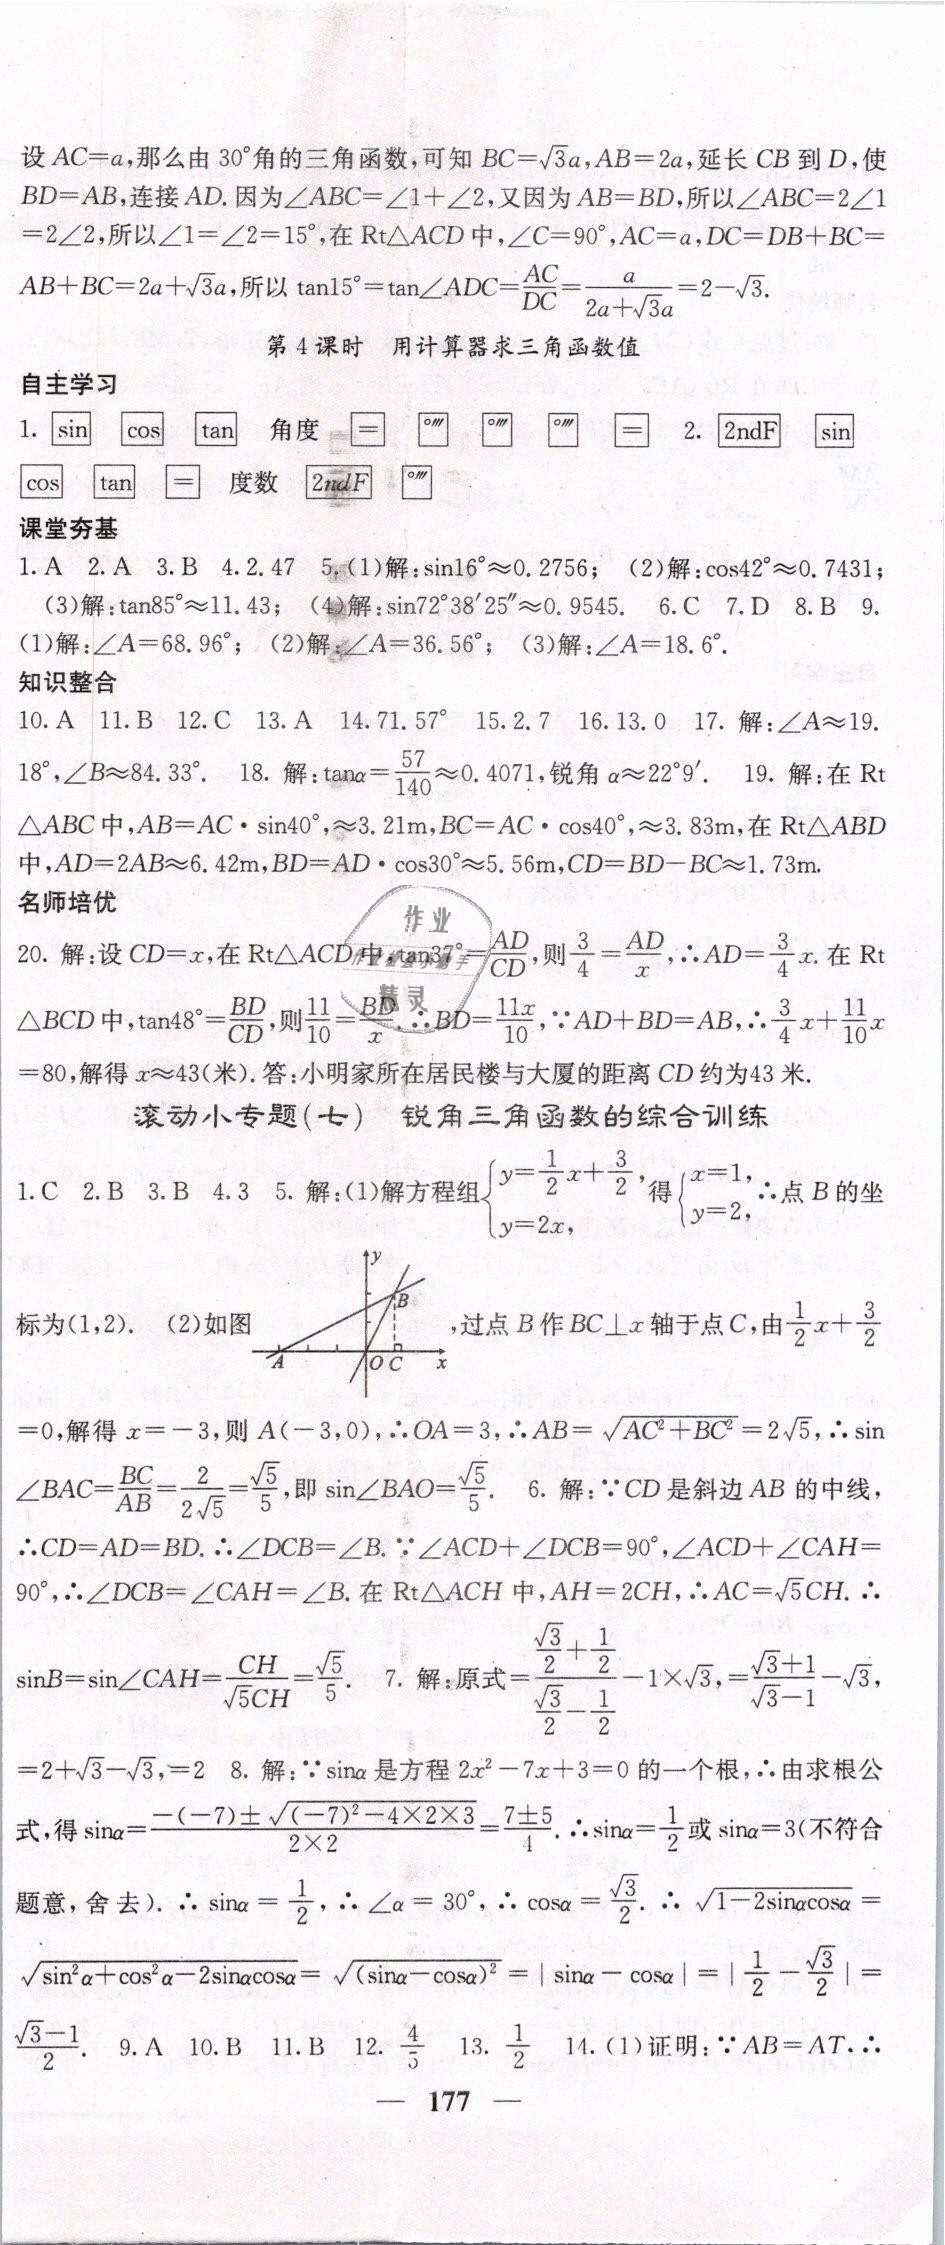 设 AC=a,那么由 30°角的三角函数,可知 BC=√3a,AB=2a,延长 CB 到 D,使
BD=AB,连接 AD.因为∠ABC=∠1+∠2,又因为 AB=BD,所以∠ABC=2∠1
=2∠2,所以∠1=∠2=15°,在 Rt△ACD 中,∠C=90°,AC=a,DC=DB+BC=
AB+BC=2a+√3a,所以 tan15°=tan∠ADC=AC/DC=a/(2a+√3a)=2-√3.
第 4 课时 用计算器求三角函数值
自主学习
1. sin cos tan 角度 = °′″ °′″ °′″ = 2. 2ndF sin
cos tan = 度数 2ndF °′″
课堂夯基
1.A 2.A 3.B 4.2.47 5.(1)解:sin16°≈0.2756; (2)解:cos42°≈0.7431;
(3)解:tan85°≈11.43; (4)解:sin72°38′25″≈0.9545. 6.C 7.D 8.B 9.
(1)解:∠A=68.96°; (2)解:∠A=36.56°; (3)解:∠A=18.6°.
知识整合
10.A 11.B 12.C 13.A 14.71.57° 15.2.7 16.13.0 17. 解:∠A≈19.
18°,∠B≈84.33°. 18. 解:tanα=57/140≈0.4071,锐角 α≈22°9′. 19. 解:在 Rt
△ABC 中,AB=AC·sin40°,≈3.21m,BC=AC·cos40°,≈3.83m,在 Rt△ABD
中,AD=2AB≈6.42m,BD=AD·cos30°≈5.56m,CD=BD-BC≈1.73m.
名师培优
作业
20. 解:设 CD=x,在 Rt△ACD 中,tan37°=AD/CD,则 3/4=AD/x,∴AD=3/4x.在 Rt
精灵
△BCD 中,tan48°=BD/CD,则11/10=BD/x.∴BD=11x/10,∵AD+BD=AB,∴3/4x+11/10x
=80,解得 x≈43(米).答:小明家所在居民楼与大厦的距离 CD 约为43 米.
滚动小专题(七) 锐角三角函数的综合训练
1.C 2.B 3.B 4.3 5. 解:(1)解方程组{y=1/2x+3/2, y=2x, 得{x=1, y=2, ∴点 B 的坐
标为(1,2). (2)如图 y B A O C x ,过点 B 作 BC⊥x 轴于点 C,由1/2x+3/2
=0,解得 x=-3,则 A(-3,0),∴OA=3,∴AB=√(AC²+BC²)=2√5,∴sin
∠BAC=BC/AB=2/(2√5)=√5/5,即 sin∠BAO=√5/5. 6. 解:∵CD 是斜边 AB 的中线,
∴CD=AD=BD.∴∠DCB=∠B.∵∠ACD+∠DCB=90°,∠ACD+∠CAH=
90°,∴∠DCB=∠CAH=∠B.在 Rt△ACH 中,AH=2CH,∴AC=√5CH.∴
sinB=sin∠CAH=CH/(√5CH)=√5/5. 7. 解:原式=(√3/2+1/2)/(√3/2-1/2)-1×√3,=(√3+1)/(√3-1)-√3,
=2+√3-√3,=2 8. 解:∵sinα 是方程 2x²-7x+3=0 的一个根,∴由求根公
式,得 sinα=(-(-7)±√((-7)²-4×2×3))/(2×2)=(7±5)/4.∴sinα=1/2或 sinα=3(不符合
题意,舍去).∴sinα=1/2,∴∠α=30°,∴cosα=√3/2.∴√(1-2sinαcosα)=
√(sin²α+cos²α-2sinαcosα)=√((sinα-cosα)²)=|sinα-cosα|=|1/2-√3/2|=
(√3-1)/2. 9.A 10.B 11.B 12. 4/5 13. 1/2 14.(1)证明:∵AB=AT.∴
— 177 —